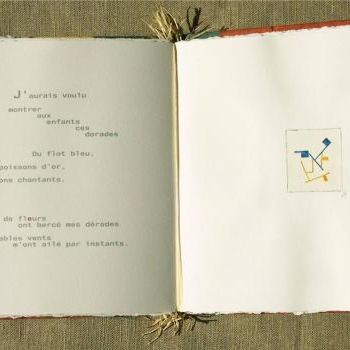 J'aurais voulu
montrer
aux
enfants
ces
dorades
Du flot bleu,
poissons d'or,
ons chantants.
de fleurs
ont bercé mes dérades
ables vents
m'ont ailé par instants.